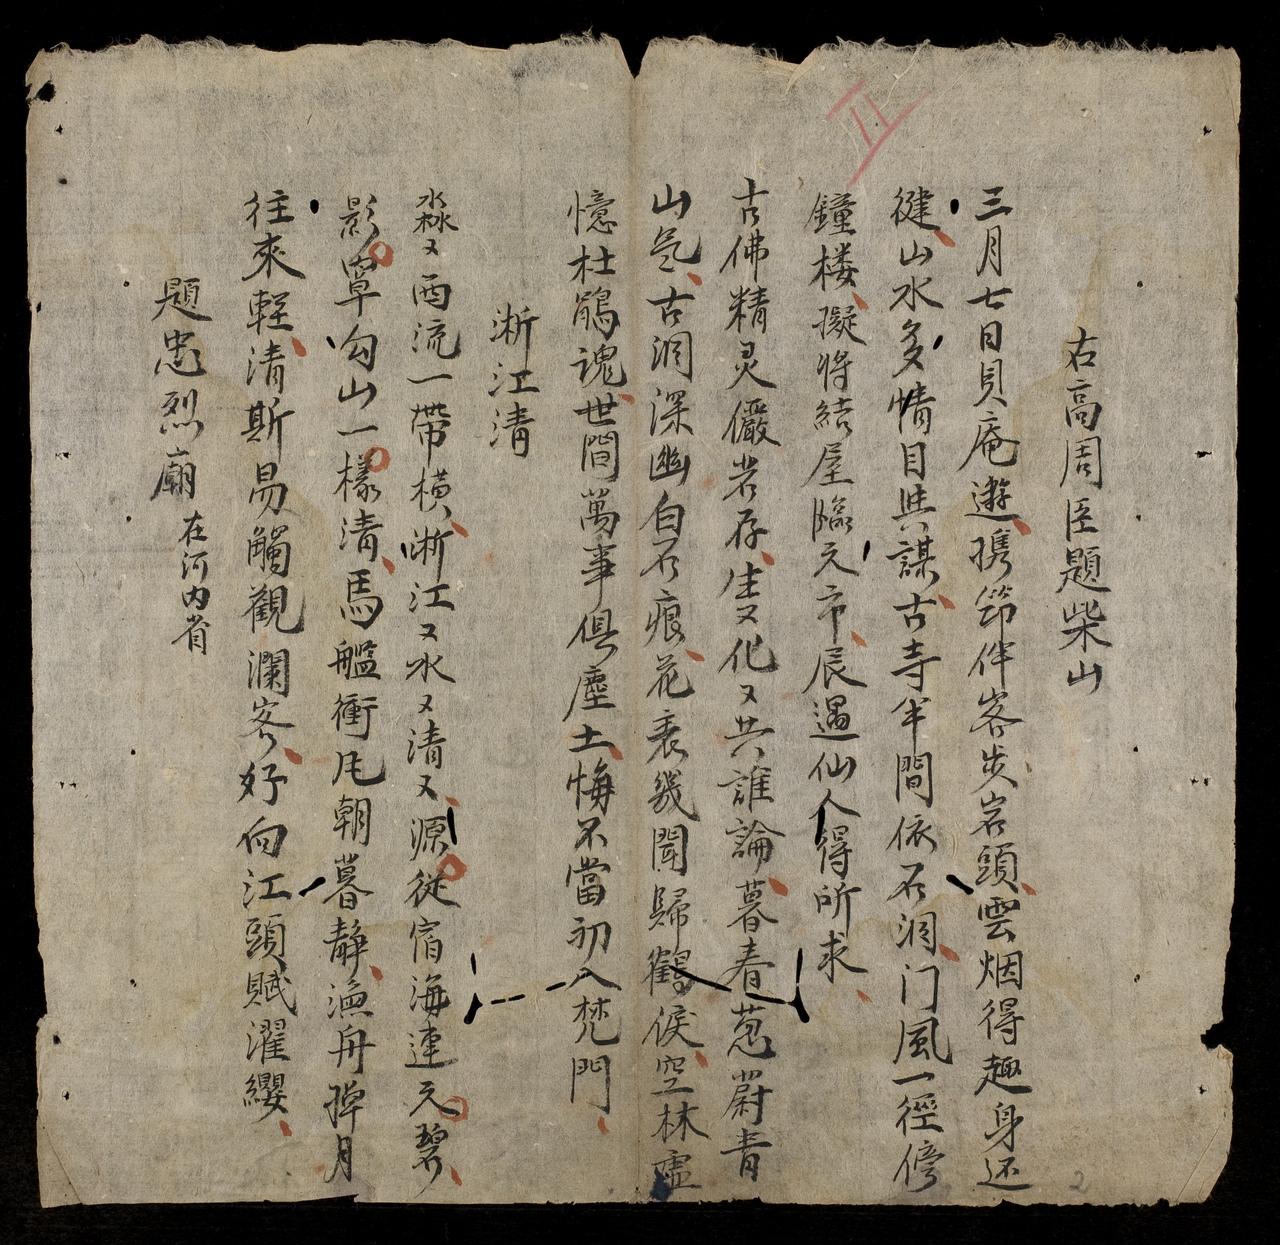 右高周臣題柴山
三月七日貝庵遊携笻伴客步岩頭雲烟得趣身还
健山水多情目與謀古寺半間依石洞门風一徑傍
鐘楼擬将結屋臨元市辰遇仙人得所求
古佛精灵儼若存生又化又共誰論暮春葱蔚青
山色古洞深幽白石痕花表幾聞歸鶴淚空林虛
憶杜鵑魂世間萬事俱塵土悔不當初入梵門
淅江清
淼又西流一帶横淅江又水又清又源従宿海連元碧
影罩勾山一樣清馬艦衝凡朝暮静漁舟掉月
往來軽清斯易觸觀瀾客好向江頭賦濯纓
題忠烈廟在河内省